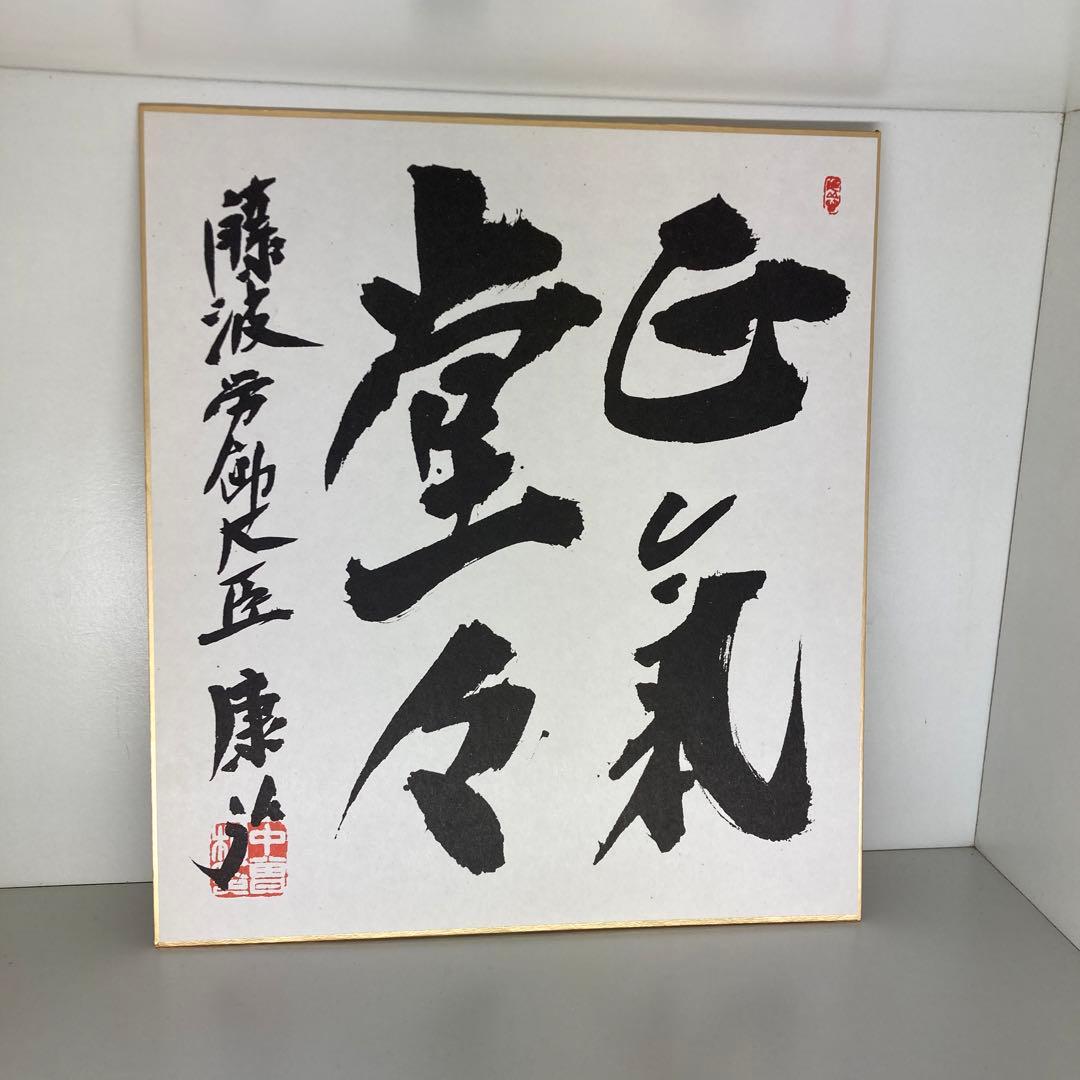 正氣
堂々
藤波労働大臣 康弘